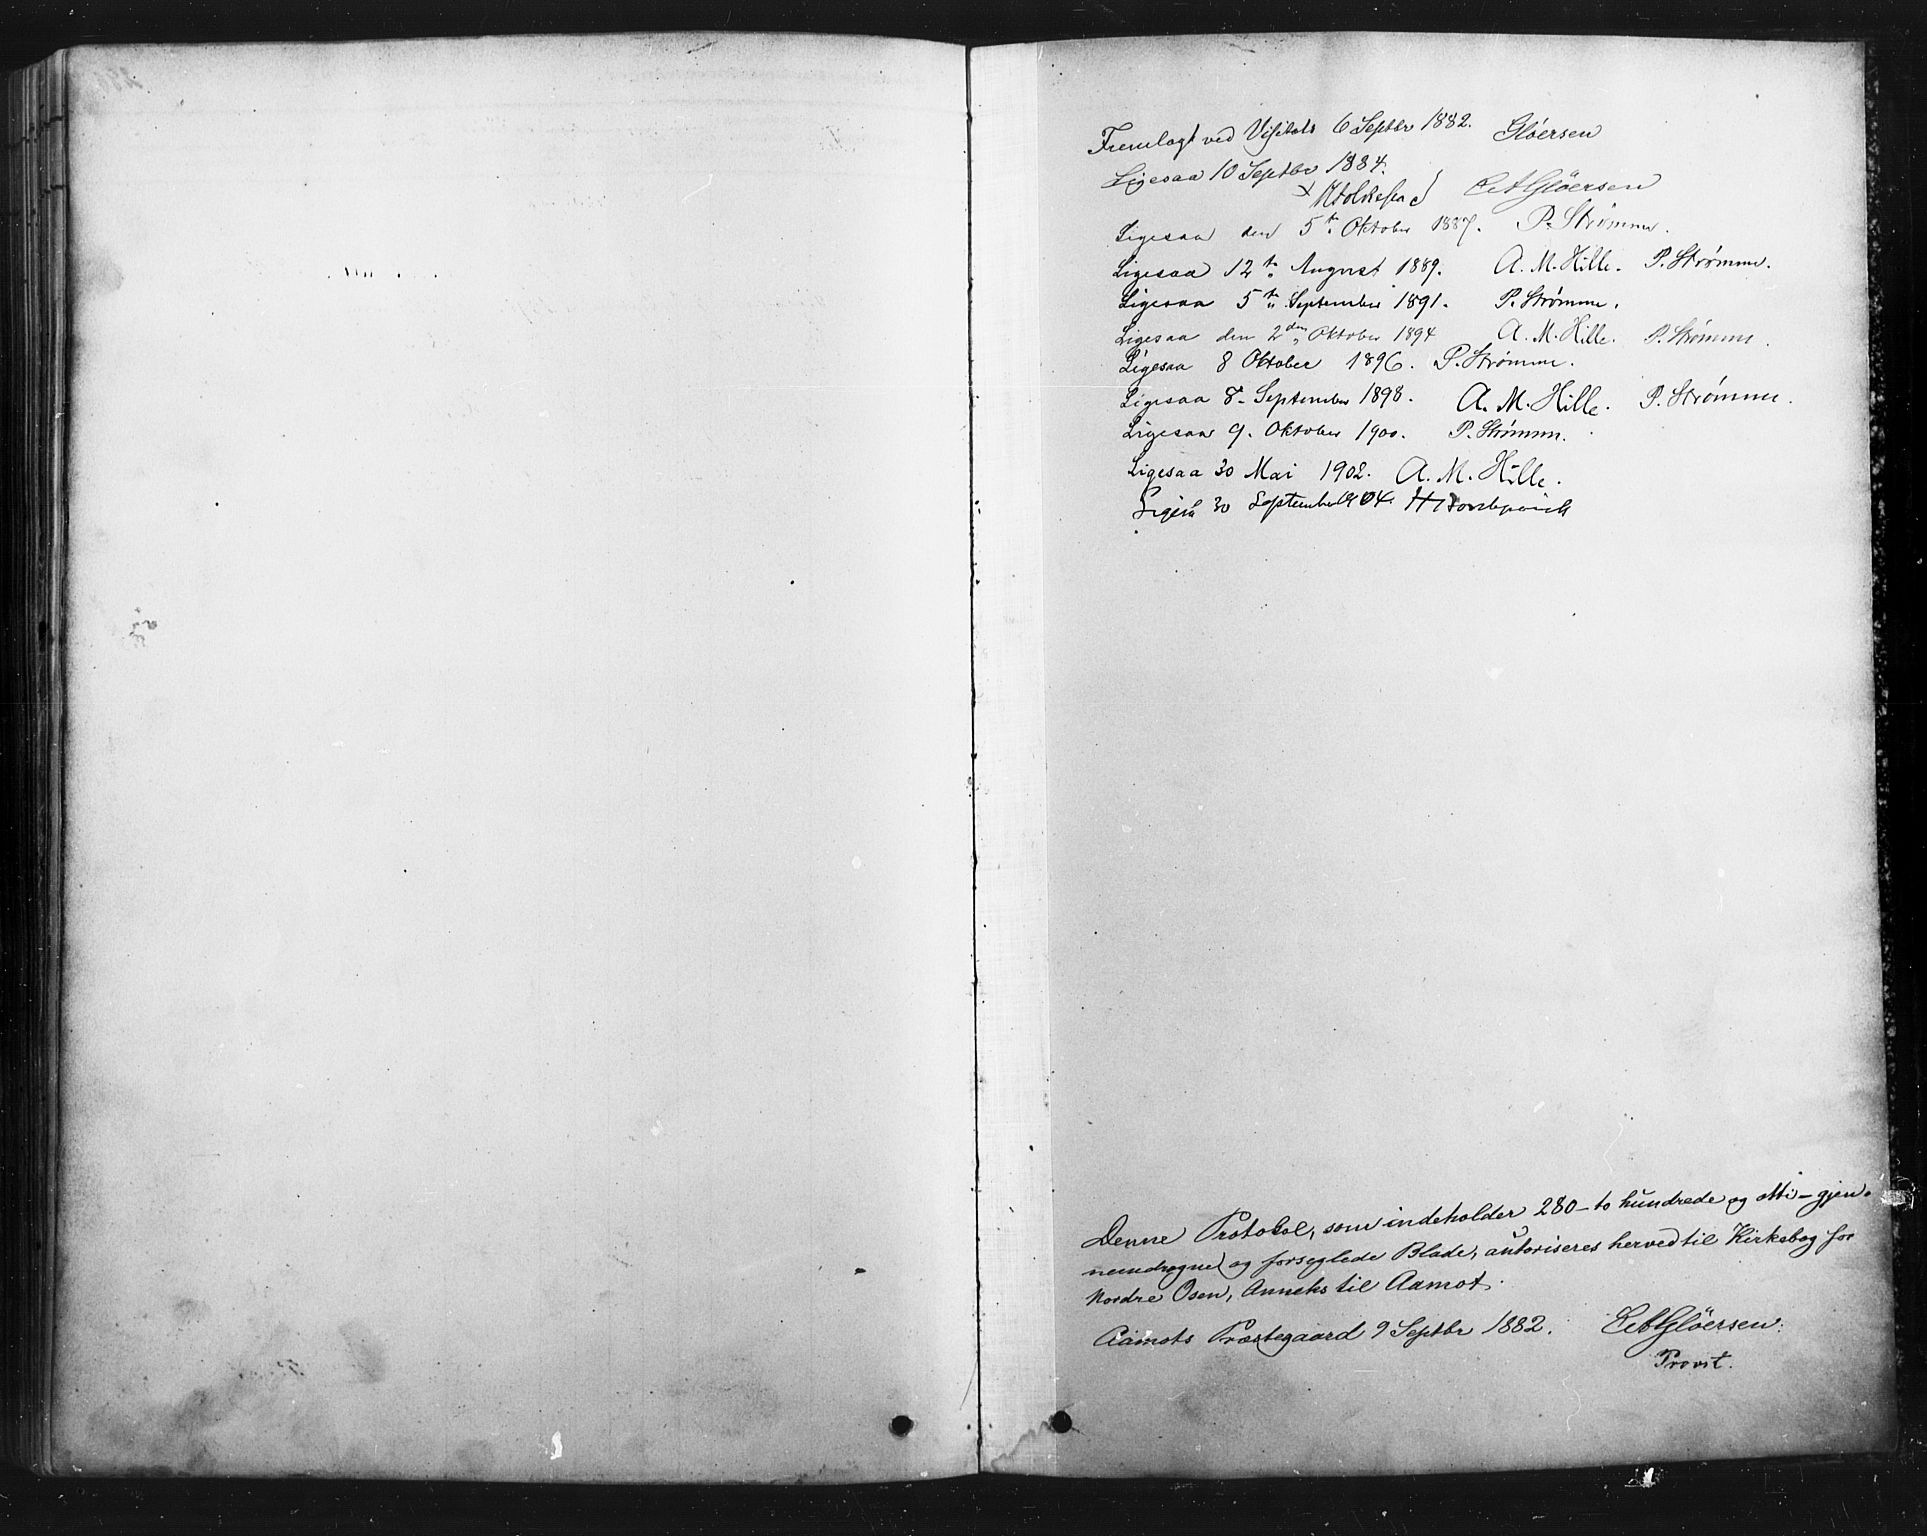 Fremlagt ved Visitats 6 Septbr 1882. Glöersen
Ligesaa 10 Septbr 1884.
CAGlöersen
Ligesaa den 5te Oktober 1887. P. Strømme.
Ligesaa 12te August 1889. A. M. Hille. P. Strømme.
Ligesaa 5te September 1891. P. Strømme.
Ligesaa den 2den Oktober 1894 A. M. Hille. P. Strømme.
Ligesaa 8 Oktober 1896. P. Strømme.
Ligesaa 8. September 1898. A. M. Hille. P. Strømme.
Ligesaa 9. Oktober 1900. P. Strømme.
Ligesaa 30 Mai 1902. A. M. Hille.
Ligeså 30 September 1904.
Denne Protokol, som indeholder 280 - to hundrede og otti - gjen-
nemdragne og forseglede Blade, autoriseres herved til Kirkebog for
Nordre Osen, Anneks til Aamot.
Aamots Præstegaard 9 Septbr 1882. CAGlöersen.
Provst.